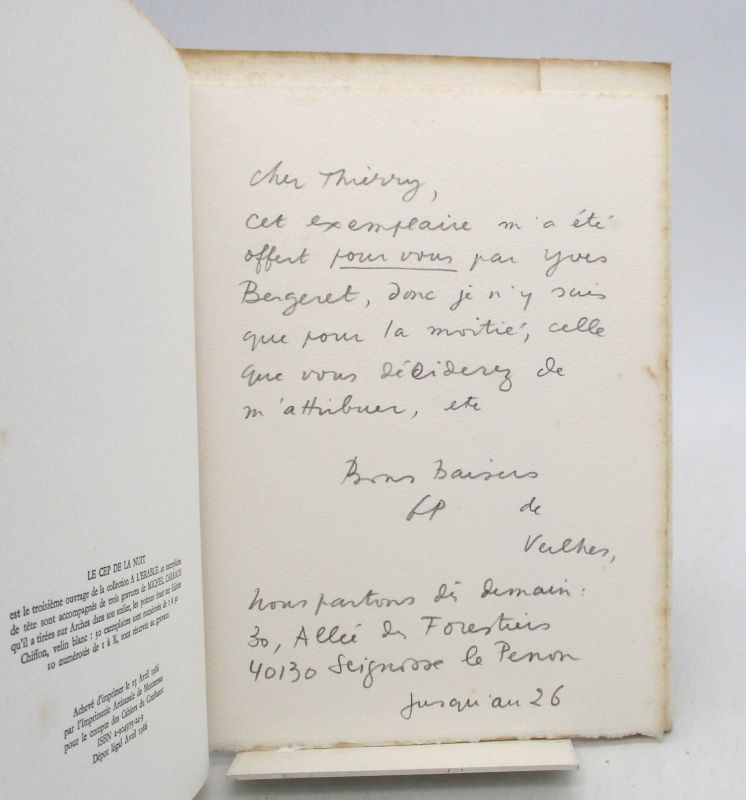 LE CEP DE LA NUIT
est le troisième ouvrage de la collection A L'ÉRABLE. 40 exemplaires
de tête sont accompagnés de trois gravures de MICHEL
qu'il a tirées sur Arches dans son atelier, les poèmes étant sur
Chiffon, velin blanc : 30 exemplaires sont numérotés de 1 à 30
10 numérotés de I à X, sont réservés au graveur.
Achevé d'imprimer le 23 Avril 1986
par l'Imprimerie Artisanale de
pour le compte des Cahiers du Confluent
ISBN
Dépot légal Avril 1986
Cher Thierry,
cet exemplaire m'a été
offert pour vous par Yves
Bergeret, donc je n'y suis
que pour la moitié, celle
que vous déciderez de
m'attribuer, etc
Bons baisers
de
Veilhes,
Nous partons dès demain :
30, Allée des Forestiers
40130 Seignosse le Penon
jusqu'au 26